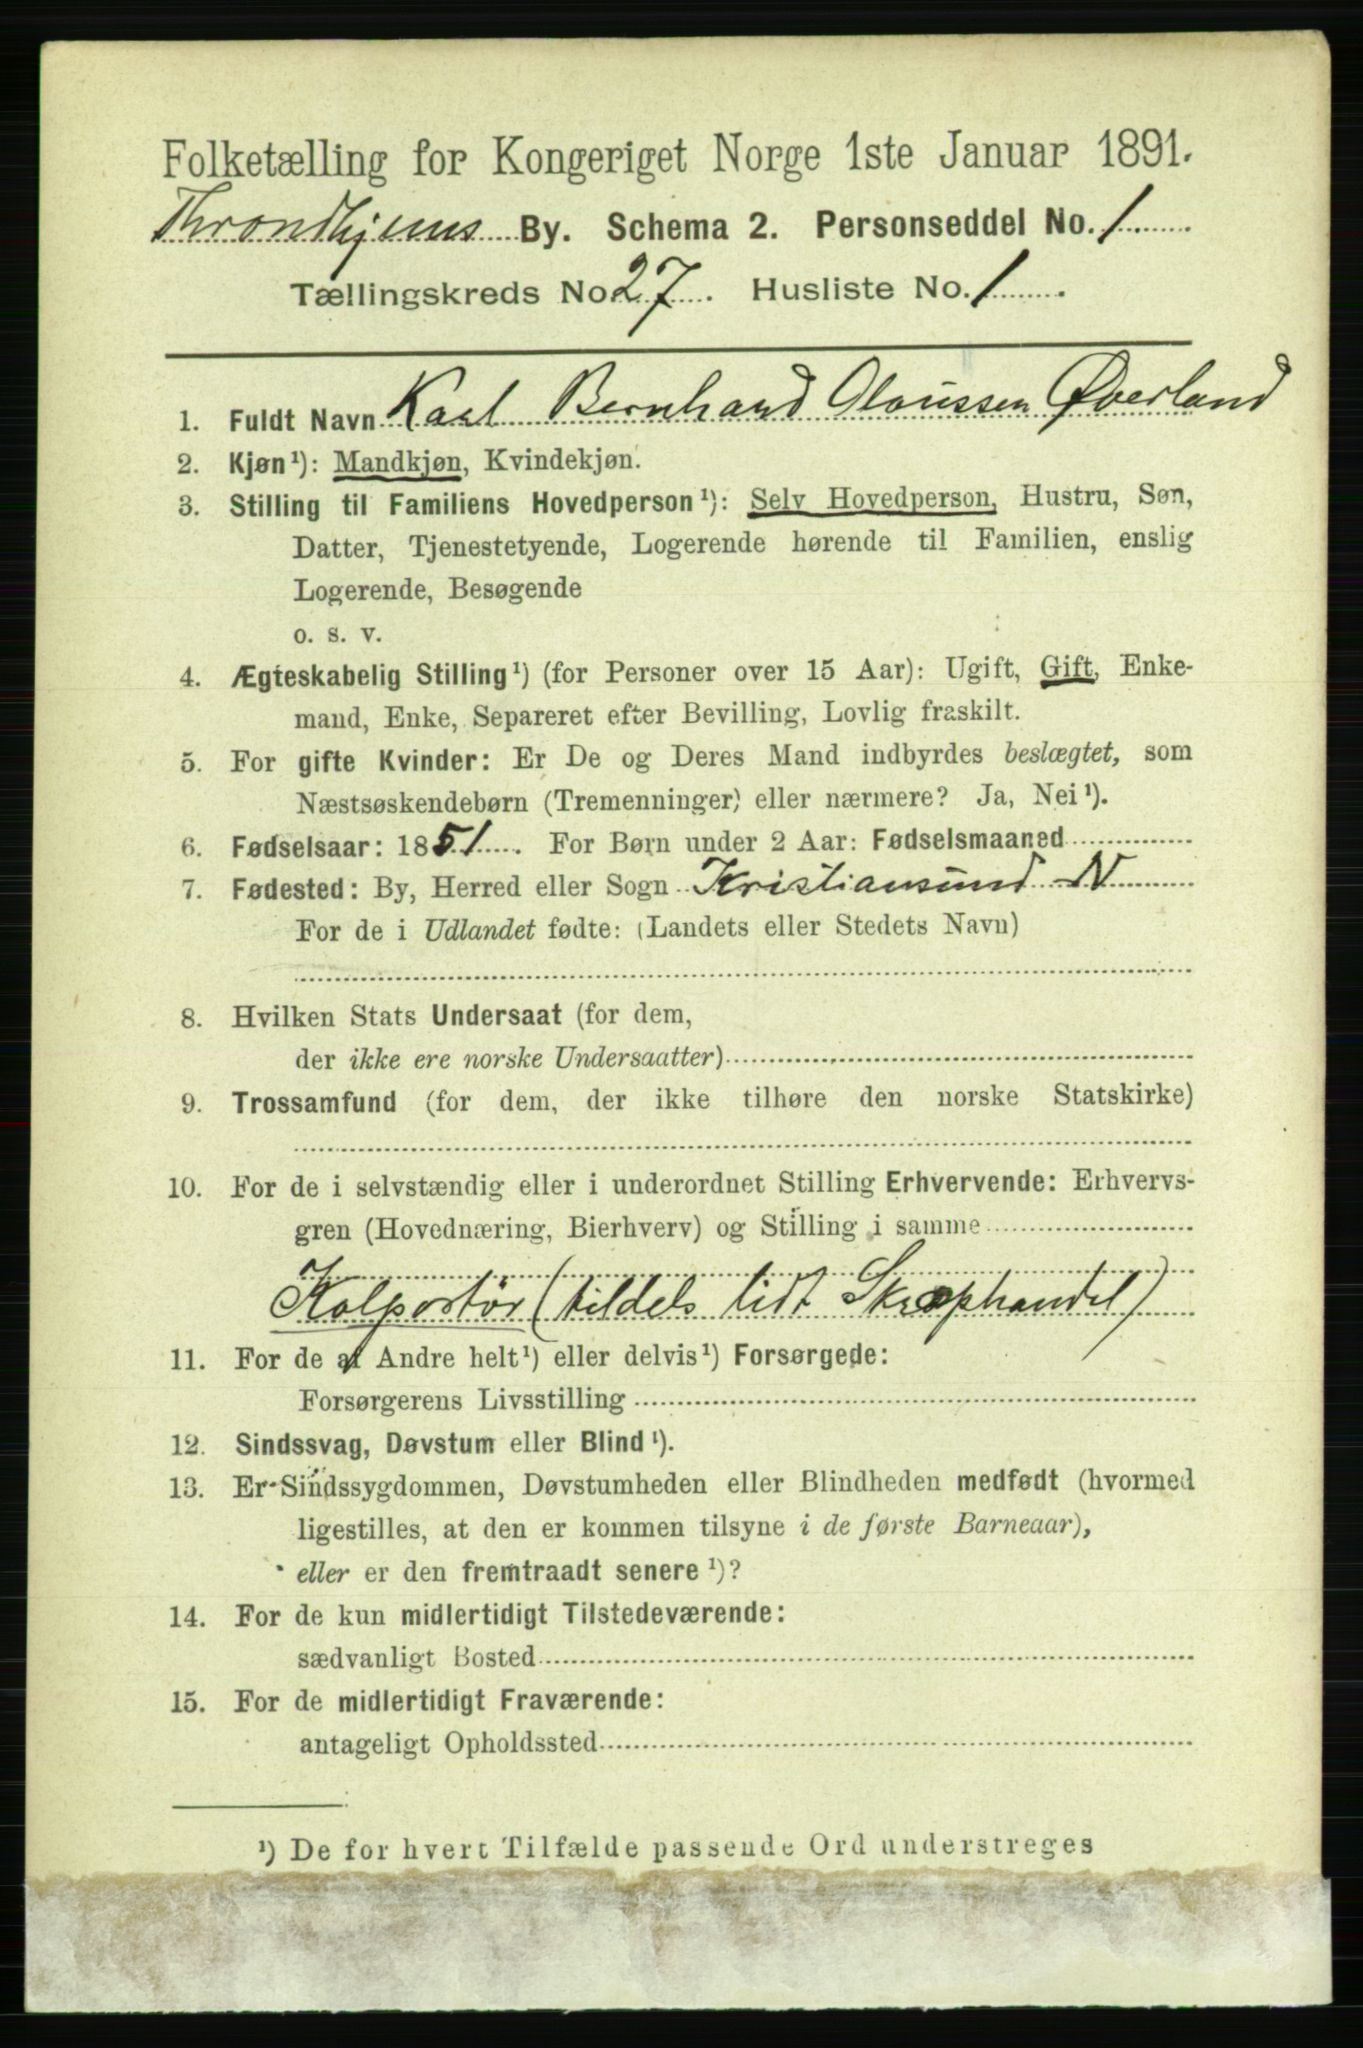 Folketælling for Kongeriget Norge 1ste Januar 1891.
Throndhjems By. Schema 2. Personseddel No. 1.
Tællingskreds No. 27. Husliste No. 1
1. Fuldt Navn Karl Bernhard Olaussen Øverland
2. Kjøn¹): Mandkjøn, Kvindekjøn.
3. Stilling til Familiens Hovedperson¹): Selv Hovedperson, Hustru, Søn,
Datter, Tjenestetyende, Logerende hørende til Familien, enslig
Logerende, Besøgende
o. s. v.
4. Ægteskabelig Stilling¹) (for Personer over 15 Aar): Ugift, Gift, Enke-
mand, Enke, Separeret efter Bevilling, Lovlig fraskilt.
5. For gifte Kvinder: Er De og Deres Mand indbyrdes beslægtet, som
Næstsøskendebørn (Tremenninger) eller nærmere? Ja, Nei¹).
6. Fødselsaar: 1851. For Børn under 2 Aar: Fødselsmaaned
7. Fødested: By, Herred eller Sogn Kristiansund N
For de i Udlandet fødte: (Landets eller Stedets Navn)
8. Hvilken Stats Undersaat (for dem,
der ikke ere norske Undersaatter)
9. Trossamfund (for dem, der ikke tilhøre den norske Statskirke)
10. For de i selvstændig eller i underordnet Stilling Erhvervende: Erhvervs-
gren (Hovednæring, Bierhverv) og Stilling i samme
Kolportør (tildels lidt Skraphandel)
11. For de af Andre helt¹) eller delvis¹) Forsørgede:
Forsørgerens Livsstilling
12. Sindssvag, Døvstum eller Blind¹).
13. Er Sindssygdommen, Døvstumheden eller Blindheden medfødt (hvormed
ligestilles, at den er kommen tilsyne i de første Barneaar),
eller er den fremtraadt senere¹)?
14. For de kun midlertidigt Tilstedeværende:
sædvanligt Bosted
15. For de midlertidigt Fraværende:
antageligt Opholdssted
¹) De for hvert Tilfælde passende Ord understreges